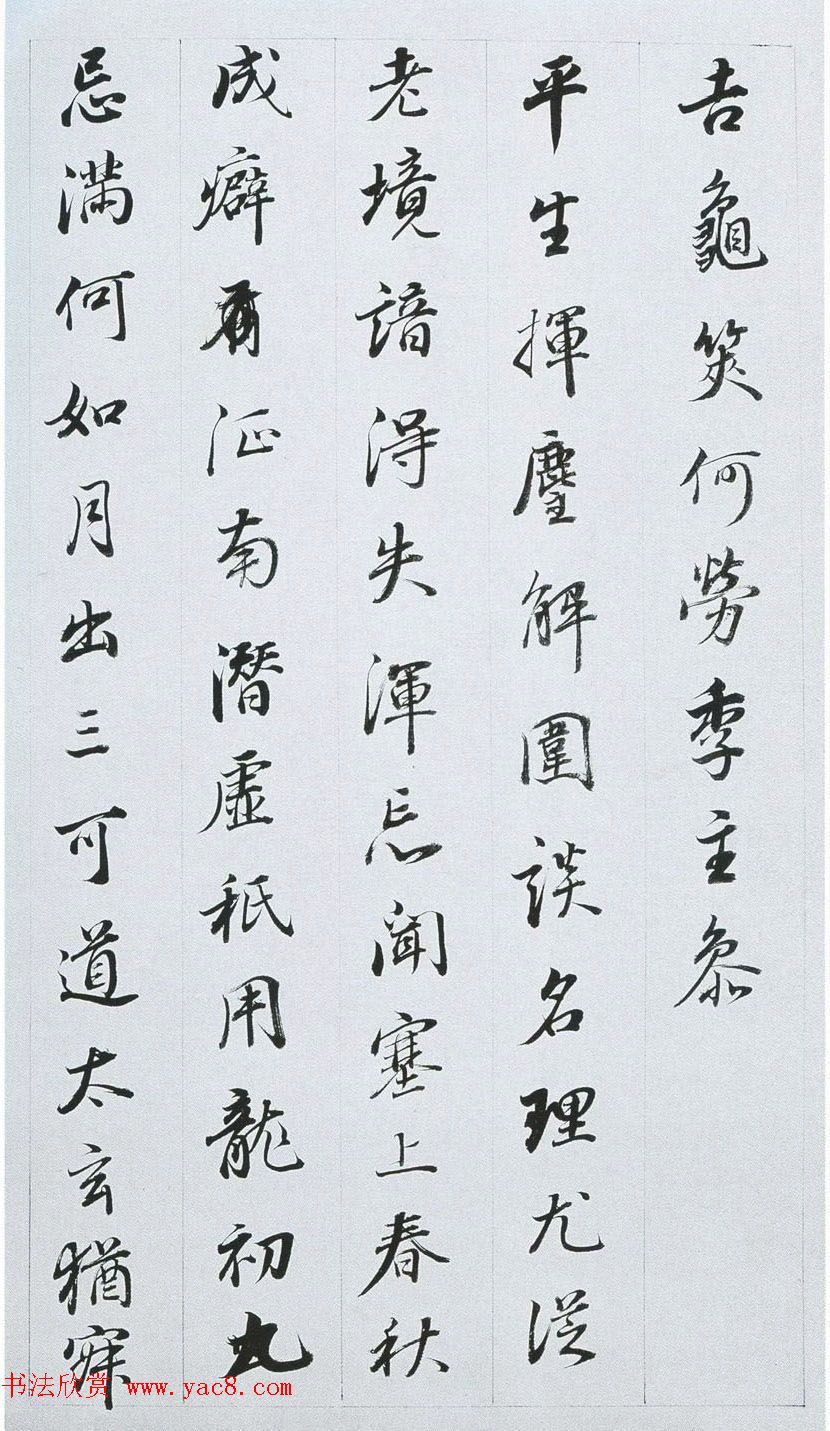 吉龜筴何勞季主叅
平生揮麈解圍談名理尤從
老境諳得失渾忘聞塞上春秋
成癖有征南潛虛秖用龍初九
忌滿何如月出三可道太玄猶寐
书法欣赏 www.yac8.com